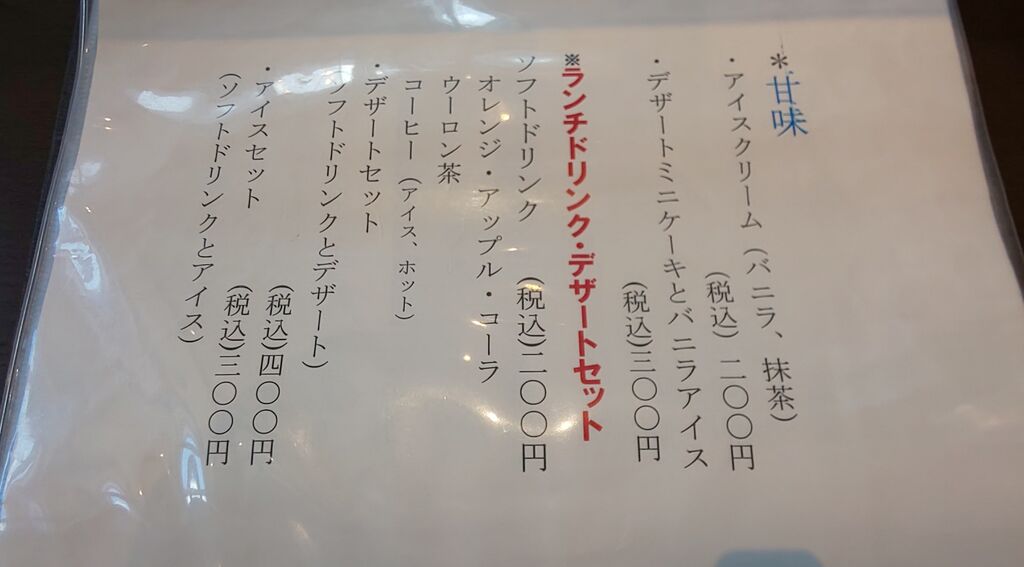 ＊甘味
・アイスクリーム（バニラ、抹茶）
(税込) 二〇〇円
・デザートミニケーキとバニラアイス
(税込)三〇〇円
※ランチドリンク・デザートセット
ソフトドリンク　(税込)二〇〇円
オレンジ・アップル・コーラ
ウーロン茶
コーヒー（アイス、ホット）
・デザートセット
（ソフトドリンクとデザート）
(税込)四〇〇円
・アイスセット
(税込)三〇〇円
（ソフトドリンクとアイス）